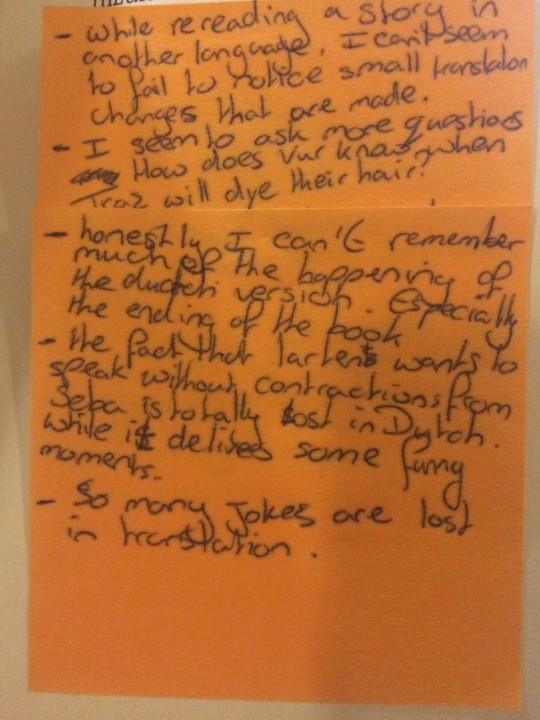 - while rereading a story in
another language, I can't seem
to fail to notice small translaton
changes that are made.
- I seem to ask more questions
How does Vur know when
Traz will dye their hair?
- honestly I can't remember
much of the happening of
the dutch version. Especially
the ending of the book
- the fact that larten wants to
speak without contractions from
Seba is totally lost in Dutch.
while it delives some funny
moments.
- So many jokes are lost
in translation.